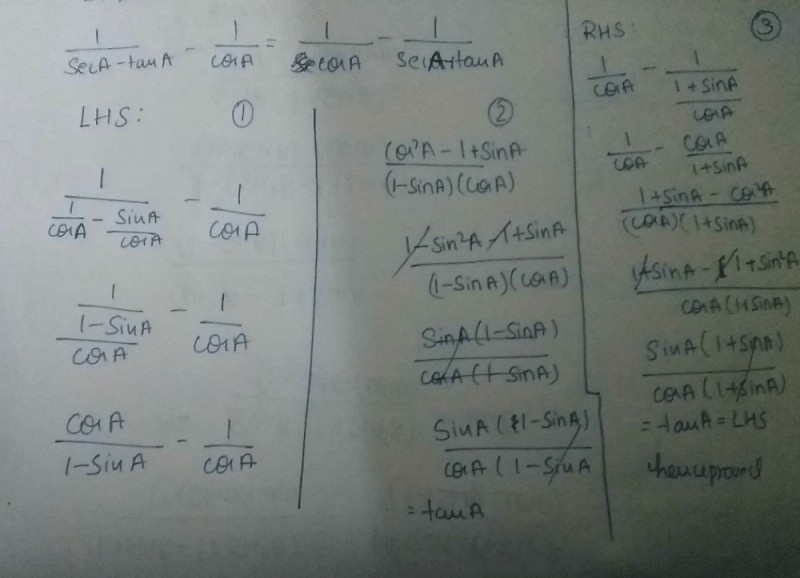 1/(SecA-tanA) - 1/cosA = 1/cosA - 1/(SecA+tanA)
LHS: ①
1/(1/cosA - SinA/cosA) - 1/cosA
1/((1-SinA)/cosA) - 1/cosA
cosA/(1-SinA) - 1/cosA
②
(cos²A - 1+SinA)/((1-SinA)(cosA))
(1-Sin²A-1+SinA)/((1-SinA)(cosA))
SinA(1-SinA)/cosA(1-SinA)
SinA(1-SinA)/cosA(1-SinA
=tanA
RHS: ③
1/cosA - 1/((1+SinA)/cosA)
1/cosA - cosA/(1+SinA)
(1+SinA - cos²A)/((cosA)(1+SinA))
(1+SinA-1+Sin²A)/(cosA(1+SinA))
SinA(1+SinA)/cosA(1+SinA)
=tanA=LHS
hence proved